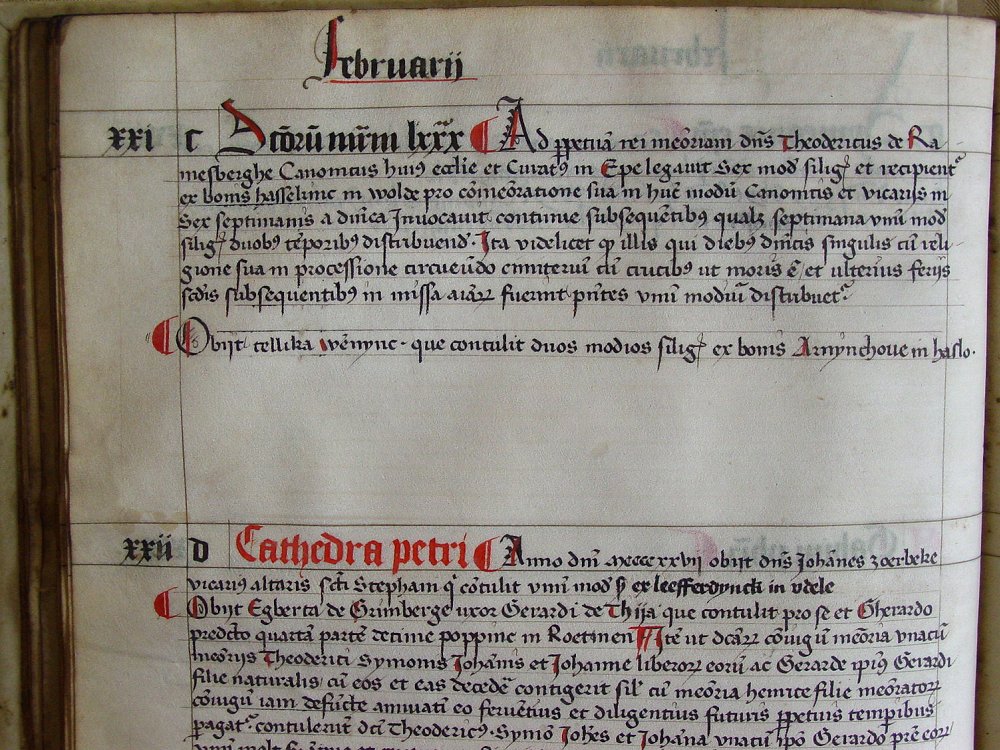 Februarii
xxi c Sctōrū mrm lxxx Ad ppetuā rei meōriam dn̄s Theodericus de Ra
mesberghe Canonicus huiꝰ eccl̄ie et Curatꝰ in Epe legavit Sex mod siligꝭ et recipient
ex bonis hasselinc in wolde pro cōmeōratione sua in hūc modū Canonicis et vicarijs in
Sex septimanis a dn̄ica Invocavit continue subsequētibꝰ qualꝫ septimana vnū mod
siligꝭ duobꝰ tēporibꝰ distribuend. Ita videlicet qꝫ illis qui diebꝰ dn̄icis singulis cū reli
gione sua in processione circueūdo cimiteriū cū crucibꝰ ut moris ē, et ulterius ferijs
scd̄is subsequentibꝰ in missa aīaꝝ fuerint pn̄tes vnū modiū distribuet
Obijt tellika wēnync. que contulit duos modios siligꝭ ex bonis Arnynchove in haslo.
xxii D Cathedra petri Anno dn̄i mcccc xxvii obijt dn̄s Johānes zoerbeke
vicariꝰ altaris sct̄i Stephani qͥ cōtulit vnū mod sꝭ ex leefferdynck in vdele
Obijt Egberta de Grimberge uxor Gerardi de Thija que contulit pro se et Gherardo
predcto quartā partē decime poppine in Roetmen Itē ut dcāꝝ cōiugū meōria vnacū
meōrijs Theoderici Symonis Johānis et Johanne liberoꝝ eorū ac Gerarde ipiꝰ Gerardi
filie naturalis cū eos et eas decedē contigerit sil̄ cū meōria heinrice filie meōratoꝝ
cōiugū iam defūcte annuati eo ferventius et diligentius futuris ppetuis temporibus
pagat. contulerūt dcī Theodericꝰ. Symō Johēs et Johāna vnacū ip̄o Gerardo prē eoꝝ